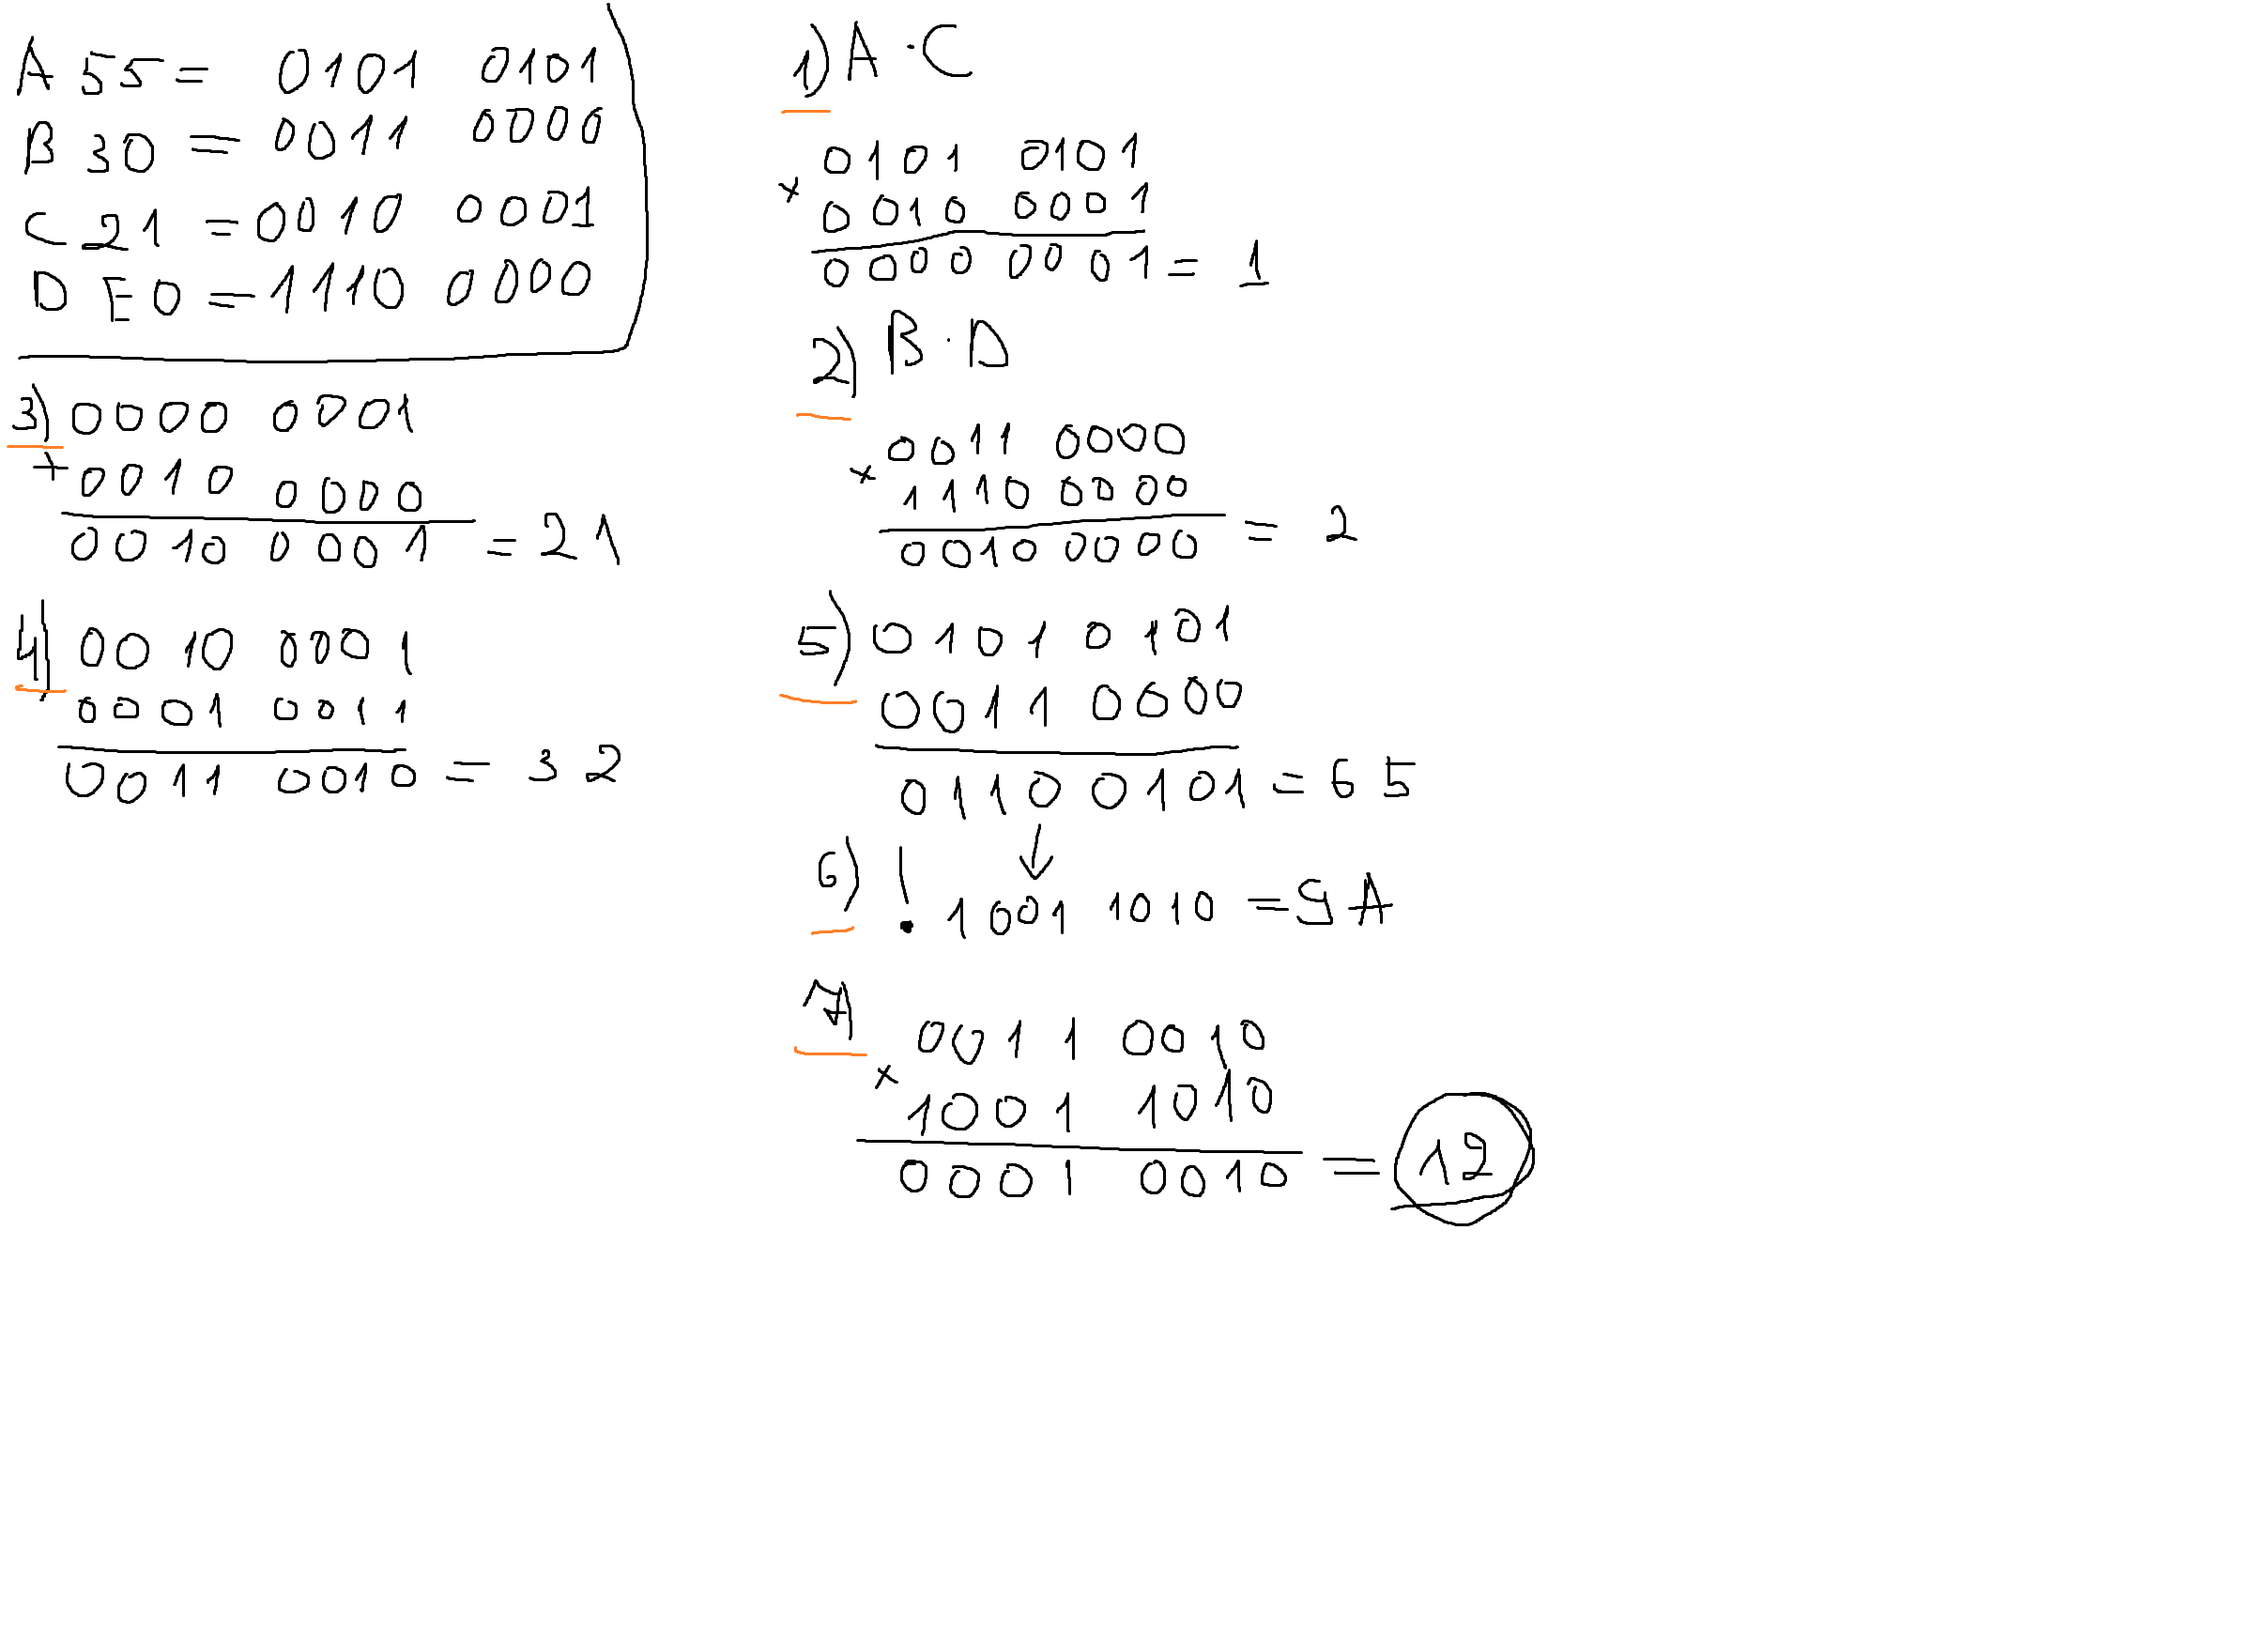 A 55 = 0101 0101
B 30 = 0011 0000
C 21 = 0010 0001
D E0 = 1110 0000
1) A · C
0101 0101
× 0010 0001
0000 0001 = 1
2) B · D
0011 0000
× 1110 0000
0010 0000 = 2
3) 0000 0001
+ 0010 0000
0010 0001 = 21
4) 0010 0001
0001 0011
0011 0010 = 32
5) 0101 0101
0011 0000
0110 0101 = 65
↓
6) ! 1001 1010 = 9A
7) 0011 0010
× 1001 1010
0001 0010 = 12